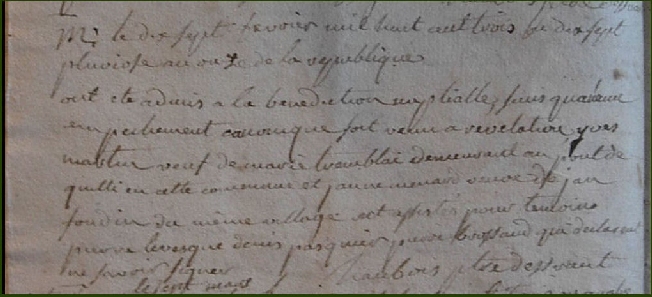 M: le dix sept fevrier mil huit cent trois ou dix sept
pluviose an onze de la republique
ont ete admis a la benediction nuptialle, sans quaucun
empechement canonique soit venu a revelation yves
martin veuf de marie tremblai demeurant au
en cette commune et janne menard veuve de jan
foudin du même village ont assistés pour temoins
pierre levesque denis pasquier pierre brossaud qui declarent
ne savoir signer
ptre desservant
le sept mars